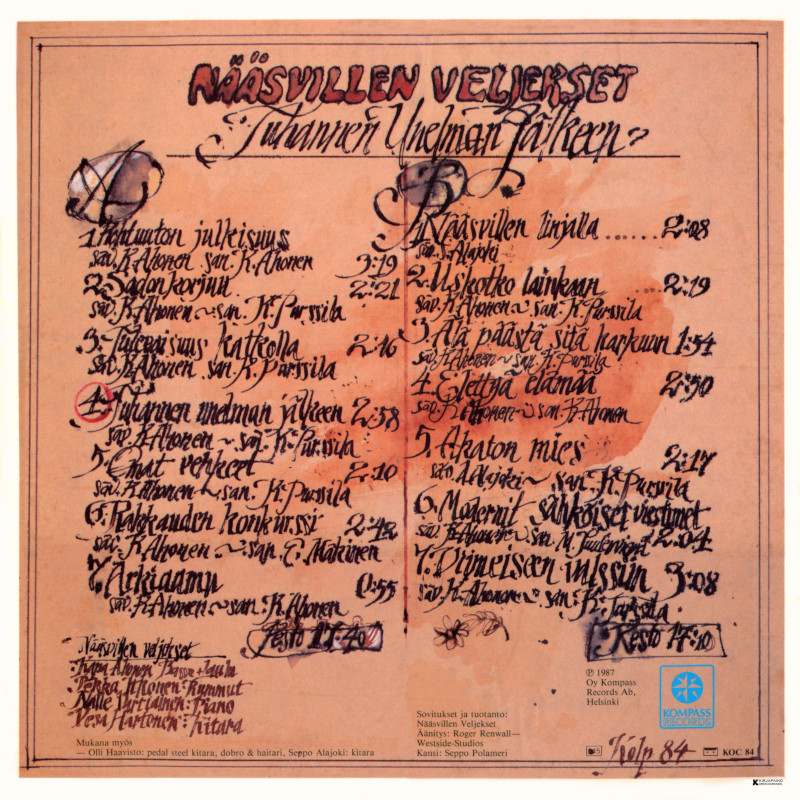 NÄÄSVILLEN VELJEKSET
Tuhannen Unelman Jälkeen
A
1. Kohtuuton julkisuus
säv. K. Ahonen san. K. Ahonen 3:19
2. Sadonkorjuu 2:21
säv. K. Ahonen ~ san. K. Purssila
3. Tulevaisuus katkolla 2:46
säv. K. Ahonen san. K. Purssila
4. Tuhannen unelman jälkeen 2:58
säv. K. Ahonen ~ san. K. Purssila
5. Omat verkkeet 2:10
säv. K. Ahonen ~ san. K. Purssila
6. Rakkauden konkurssi 2:42
säv. K. Ahonen ~ san. E. Mäkinen
7. Arkiaamu 0:55
säv. K. Ahonen ~ san. K. Ahonen
Kesto 17:40
B
1. Nääsvillen linjalla ...... 2:08
säv. S. Alajoki
2. Uskotko lainkaan ... 2:19
säv. K. Ahonen ~ san. K. Purssila
3. Älä päästä sitä karkuun 1:54
säv. K. Ahonen ~ san. K. Purssila
4. Elettyä elämää 2:50
säv. K. Ahonen ~ san. K. Ahonen
5. Akaton mies 2:17
säv. S. Alajoki ~ san. K. Purssila
6. Modernit sähköiset viestimet
säv. K. Ahonen ~ san. M. 2:04
7. Viimeiseen valssiin 3:08
säv. K. Ahonen ~ san. K.
Kesto 17:10
Nääsvillen veljekset
Kari Ahonen: Basso + laulu
Pekka Ahonen: Rummut
Nalle Virtanen: Piano
Vesa Hartonen: Kitara
Mukana myös
— Olli Haavisto: pedal steel kitara, dobro & haitari, Seppo Alajoki: kitara
Sovitukset ja tuotanto:
Nääsvillen Veljekset
Äänitys: Roger Renwall—
Westside-Studios
Kansi: Seppo Polameri
℗ 1987
Oy Kompass
Records Ab,
Helsinki
KOMPASS
RECORDS
Kolp 84
KOC 84